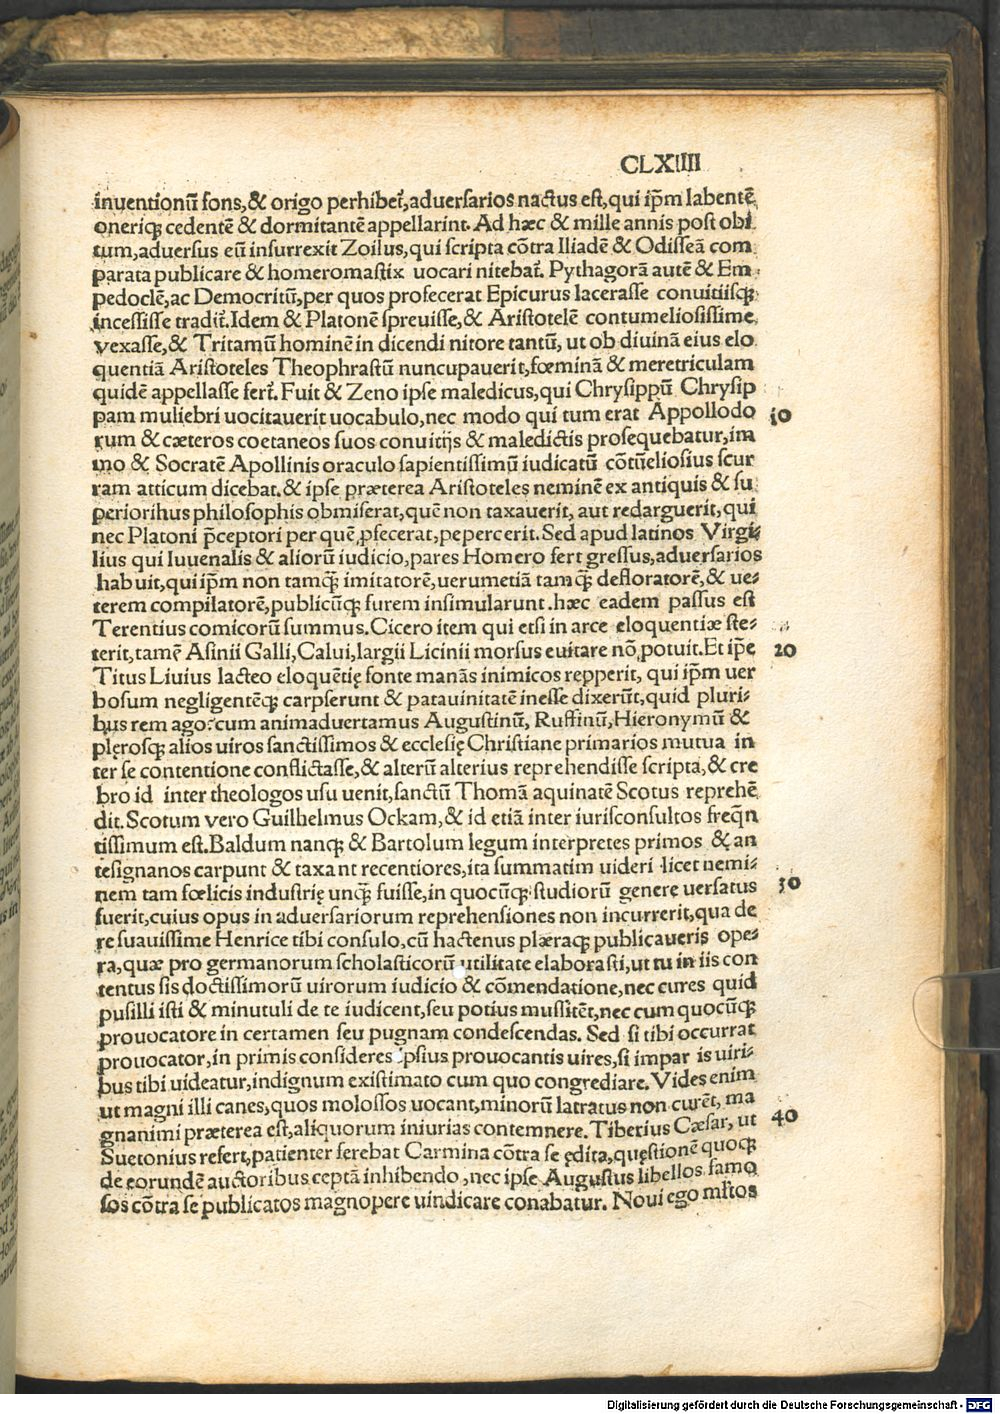 CLXIIII
inuentionū fons,& origo perhibet᷑,aduersarios nactus est,qui ip̄m labentē
oneriq; cedentē & dormitantē appellarint. Ad hæc & mille annis post obi
tum,aduersus eū insurrexit Zoilus,qui scripta cōtra Iliadē & Odisseā com
parata publicare & homeromastix uocari nitebat᷑. Pythagorā autē & Em
pedoclē,ac Democritū,per quos profecerat Epicurus lacerasse conuitiisq;
incessisse tradit᷑.Idem & Platonē spreuisse,& Aristotelē contumeliosissime
vexasse,& Tritamū hominē in dicendi nitore tantū, ut ob diuinā eius elo
quentiā Aristoteles Theophrastū nuncupauerit,fœminā & meretriculam
quidē appellasse fert᷑. Fuit & Zeno ipse maledicus,qui Chrysippū Chrysip
pam muliebri uocitauerit uocabulo,nec modo qui tum erat Appollodo
10
rum & cæteros coetaneos suos conuitijs & maledictis prosequebatur,im
mo & Socratē Apollinis oraculo sapientissimū iudicatū cōtūeliosius scur
ram atticum dicebat.& ipse præterea Aristoteles neminē ex antiquis & su
perioribus philosophis obmiserat,quē non taxauerit, aut redarguerit,qui
nec Platoni p̄ceptori per quē ꝓfecerat,pepercerit.Sed apud latinos Virgi
lius qui Iuuenalis & aliorū iudicio,pares Homero fert gressus,aduersarios
habuit,qui ip̄m non tamq̄ imitatorē,uerumetiā tamq̄ defloratorē,& ue⸗
terem compilatorē,publicūq; furem insimularunt.hæc eadem passus est
Terentius comicorū summus.Cicero item qui etsi in arce eloquentiæ ste⸗
terit,tamē Asinii Galli,Calui,largii Licinii morsus euitare nō,potuit.Et ip̄e
20
Titus Liuius lacteo eloquētię fonte manās inimicos repperit, qui ip̄m uer
bosum negligentēq; carpserunt & patauinitatē inesse dixerūt,quid pluri⸗
bus rem ago:cum animaduertamus Augustinū, Ruffinū,Hieronymū &
plęrosq; alios uiros sanctissimos & ecclesię Christiane primarios mutua in
ter se contentione conflictasse,& alterū alterius reprehendisse scripta,& cre
bro id inter theologos usu uenit,sanctū Thomā aquinatē Scotus reprehē
dit.Scotum vero Guilhelmus Ockam,& id etiā inter iurisconsultos freq̄n
tissimum est.Baldum nanq; & Bartolum legum interpretes primos & an
tesignanos carpunt & taxant recentiores,ita summatim uideri licet nemi⸗
nem tam fœlicis industrię unq̄ fuisse,in quocūq; studiorū genere uersatus
30
fuerit,cuius opus in aduersariorum reprehensiones non incurrerit,qua de
re suauissime Henrice tibi consulo,cū hactenus plæraq; publicaueris ope⸗
ra,quæ pro germanorum scholasticorū utilitate elaborasti,ut tu in iis con
tentus sis doctissimorū uirorum iudicio & cōmendatione,nec cures quid
pusilli isti & minutuli de te iudicent,seu potius mussitēt,nec cum quocūq;
prouocatore in certamen seu pugnam condescendas. Sed si tibi occurrat
prouocator,in primis consideres ipsius prouocantis uires,si impar is uiri⸗
bus tibi uideatur,indignum existimato cum quo congrediare. Vides enim
ut magni illi canes,quos molossos uocant,minorū latratus non curēt, ma
gnanimi præterea est,aliquorum iniurias contemnere. Tiberius Cæsar, ut
40
Suetonius refert,patienter ferebat Carmina cōtra se ędita,quęstionē quoq;
de eorundē auctoribus ceptā inhibendo,nec ipse Augustus libellos famo
sos cōtra se publicatos magnopere uindicare conabatur. Noui ego ml̄tos
Digitalisierung gefördert durch die Deutsche Forschungsgemeinschaft - DFG